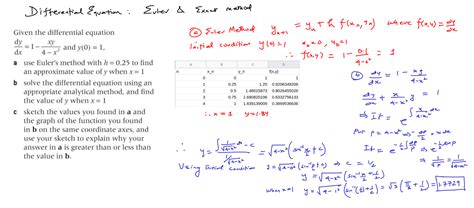 Differential Equation : Euler & Exact method
Given the differential equation
dy/dx = 1 - xy/(4 - x²) and y(0) = 1,
a use Euler's method with h = 0.25 to find
an approximate value of y when x = 1
b solve the differential equation using an
appropriate analytical method, and find
the value of y when x = 1
c sketch the values you found in a and
the graph of the function you found
in b on the same coordinate axes, and
use your sketch to explain why your
answer in a is greater than or less than
the value in b.
(a) Euler Method yₙ₊₁ = yₙ + h f(xₙ, yₙ) where f(x,y) = dy/dx
Initial condition y(0) = 1 x₀ = 0, y₀ = 1
∴ f(x,y) = 1 - 0·1/(4-x²) = 1
n x_n y_n
0 0 1 1
1 0.25 1.25
2 0.5
3 0.75
4 1
∴ x = 1 y = 1.84
(b) dy/dx = 1 - xy/(4-x²)
dy/dx + x/(4-x²) y = 1
⇒ If = e^∫ x/(4-x²) dx
Put p = 4-x² ⇒ dp/dx = -2x
If = e^(-½∫ dp/p) = e^(-½ ln p)
= 1/√p = 1/√(4-x²)
∴ y = (∫ 1/√(4-x²) dx + c)/(1/√(4-x²)) = √(4-x²) (sin⁻¹ x/2 + c)
Using Initial Condition y = √(4-x²) (sin⁻¹ x/2 + c) ⇒ c = 1/2
y = √(4-x²) (sin⁻¹ x/2 + 1/2)
when x=1 y = √(4-1²) (sin⁻¹(1/2) + 1/2) = √3 (π/6 + 1/2) = 1.7729